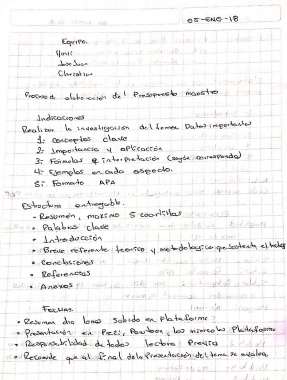 05-ENE-18
Equipo.
Christian
Proceso d elaboración del Presupuesto maestro
Indicaciones
Realizar la investigación del tema Datos importantes
1: conceptos clave
2: Importancia y aplicación
3: Formulas e interpretación (según corresponda)
4: Ejemplos en cada aspecto.
5: Formato APA
Estructura entregable.
• Resumen, maximo 5 cuartillas
• Palabras clave
• Introducción
• Breve referente teorico y metodologico que sustenta el
• Conclusiones
• Referencias
• Anexos
Fechas.
• Resumen dia lunes subido en Plataforma
• Presentación en Prezi, Powtoon, los miercoles Plataforma
• Responsabilidad de todos lectura Previa
• Recuerde que al final de la Presentación del tema se evalua